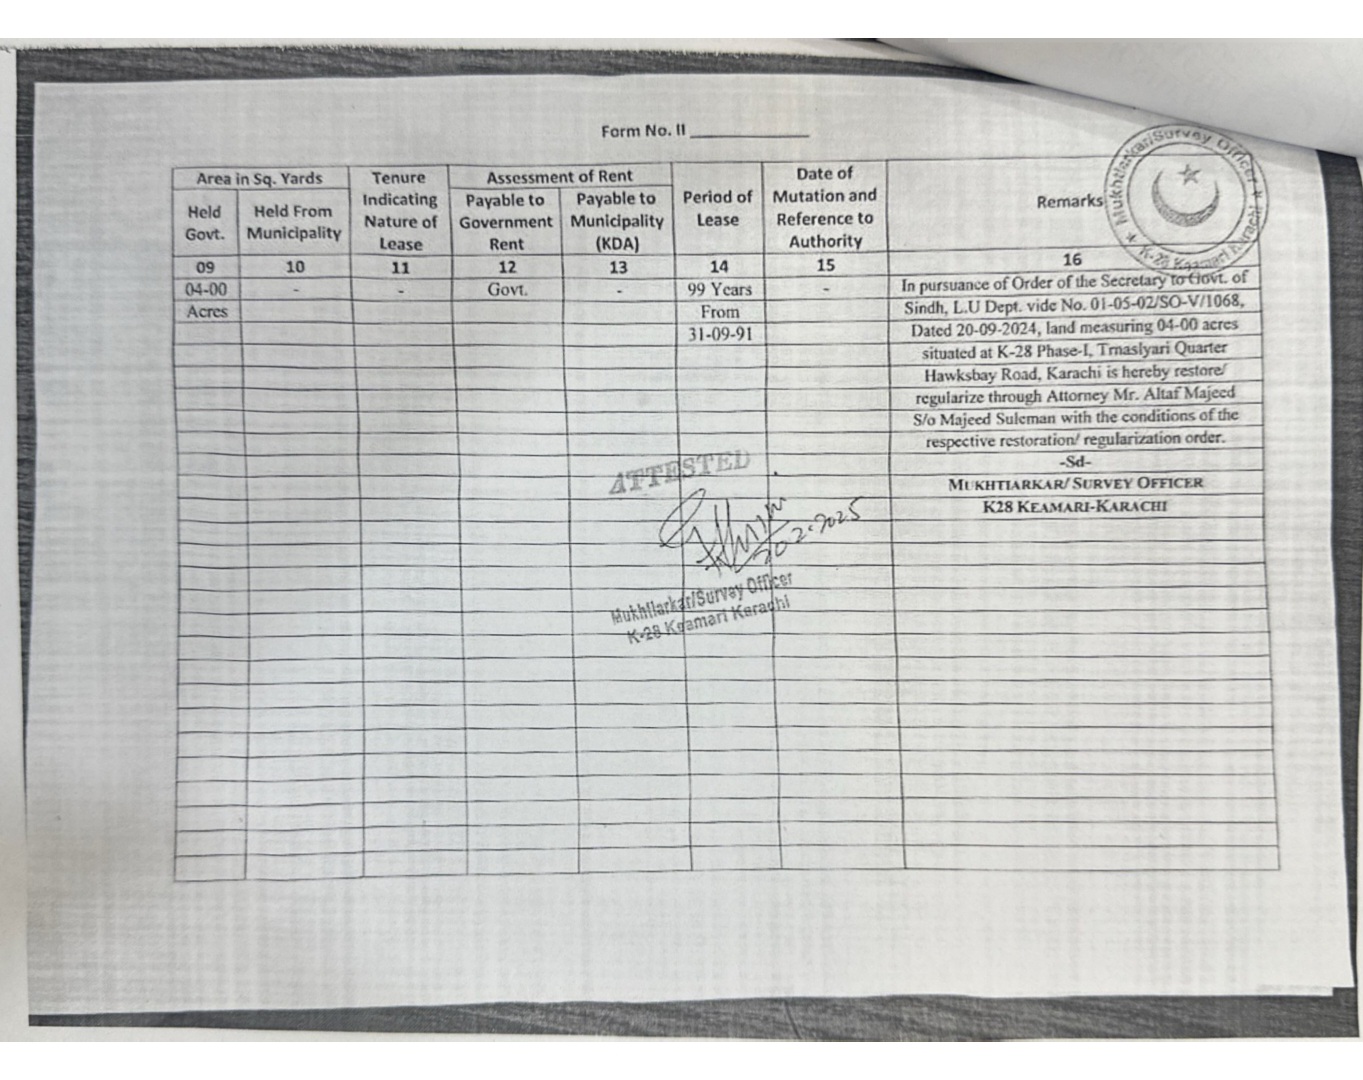 Form No. II
Area in Sq. Yards
Tenure Indicating Nature of Lease
Assessment of Rent
Period of Lease
Date of Mutation and Reference to Authority
Remarks
Held Govt.
Held From Municipality
Payable to Government Rent
Payable to Municipality (KDA)
09 10 11 12 13 14 15 16
04-00 - - Govt. - 99 Years -
Acres From
31-09-91
In pursuance of Order of the Secretary to Govt. of
Sindh, L.U Dept. vide No. 01-05-02/SO-V/1068,
Dated 20-09-2024, land measuring 04-00 acres
situated at K-28 Phase-I, Tmaslyari Quarter
Hawksbay Road, Karachi is hereby restore/
regularize through Attorney Mr. Altaf Majeed
S/o Majeed Suleman with the conditions of the
respective restoration/ regularization order.
-Sd-
MUKHTIARKAR/ SURVEY OFFICER
K28 KEAMARI-KARACHI
Mukhtiarkar/Survey Officer
K-28 Keamari Karachi
ATTESTED
Mukhtiarkar/Survey Officer
K-28 Keamari Karachi